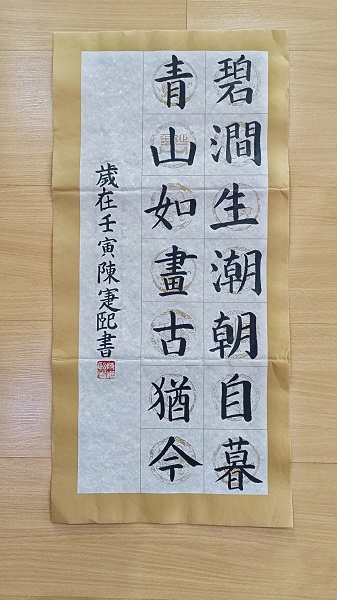 碧澗生潮朝自暮
青山如畫古猶今
歲在壬寅陳寋熙書